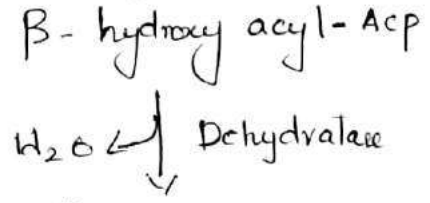 β- hydroxy acyl-Acp
H₂O Dehydratase